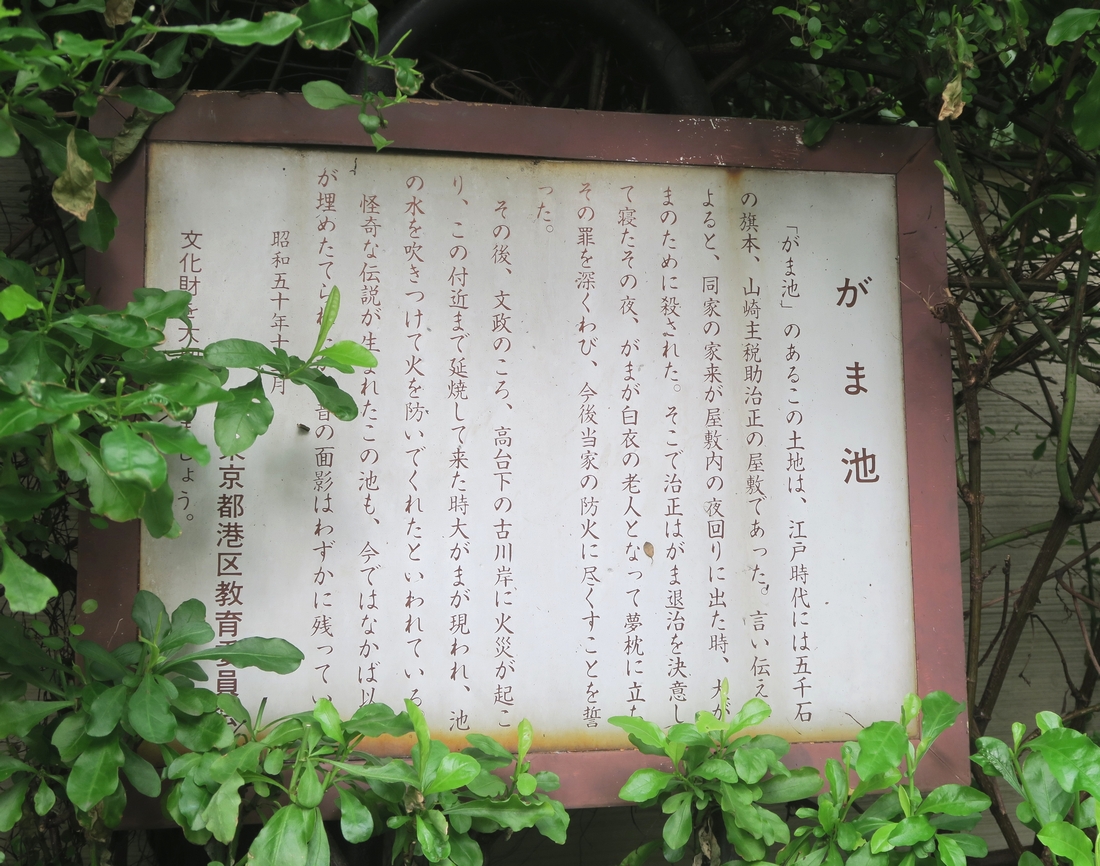 がま池
「がま池」のあるこの土地は、江戸時代には五千石
の旗本、山崎主税助治正の屋敷であった。言い伝え
よると、同家の家来が屋敷内の夜回りに出た時、大が
まのために殺された。そこで治正はがま退治を決意し
て寝たその夜、がまが白衣の老人となって夢枕に立ち
その罪を深くわび、今後当家の防火に尽くすことを誓
った。
その後、文政のころ、高台下の古川岸に火災が起こ
り、この付近まで延焼して来た時大がまが現われ、池
の水を吹きつけて火を防いでくれたといわれている。
怪奇な伝説が生まれたこの池も、今ではなかば以
が埋めたてられ 昔の面影はわずかに残ってい
昭和五十年十 月
京都港区教育委員
文化財を大 しょう。